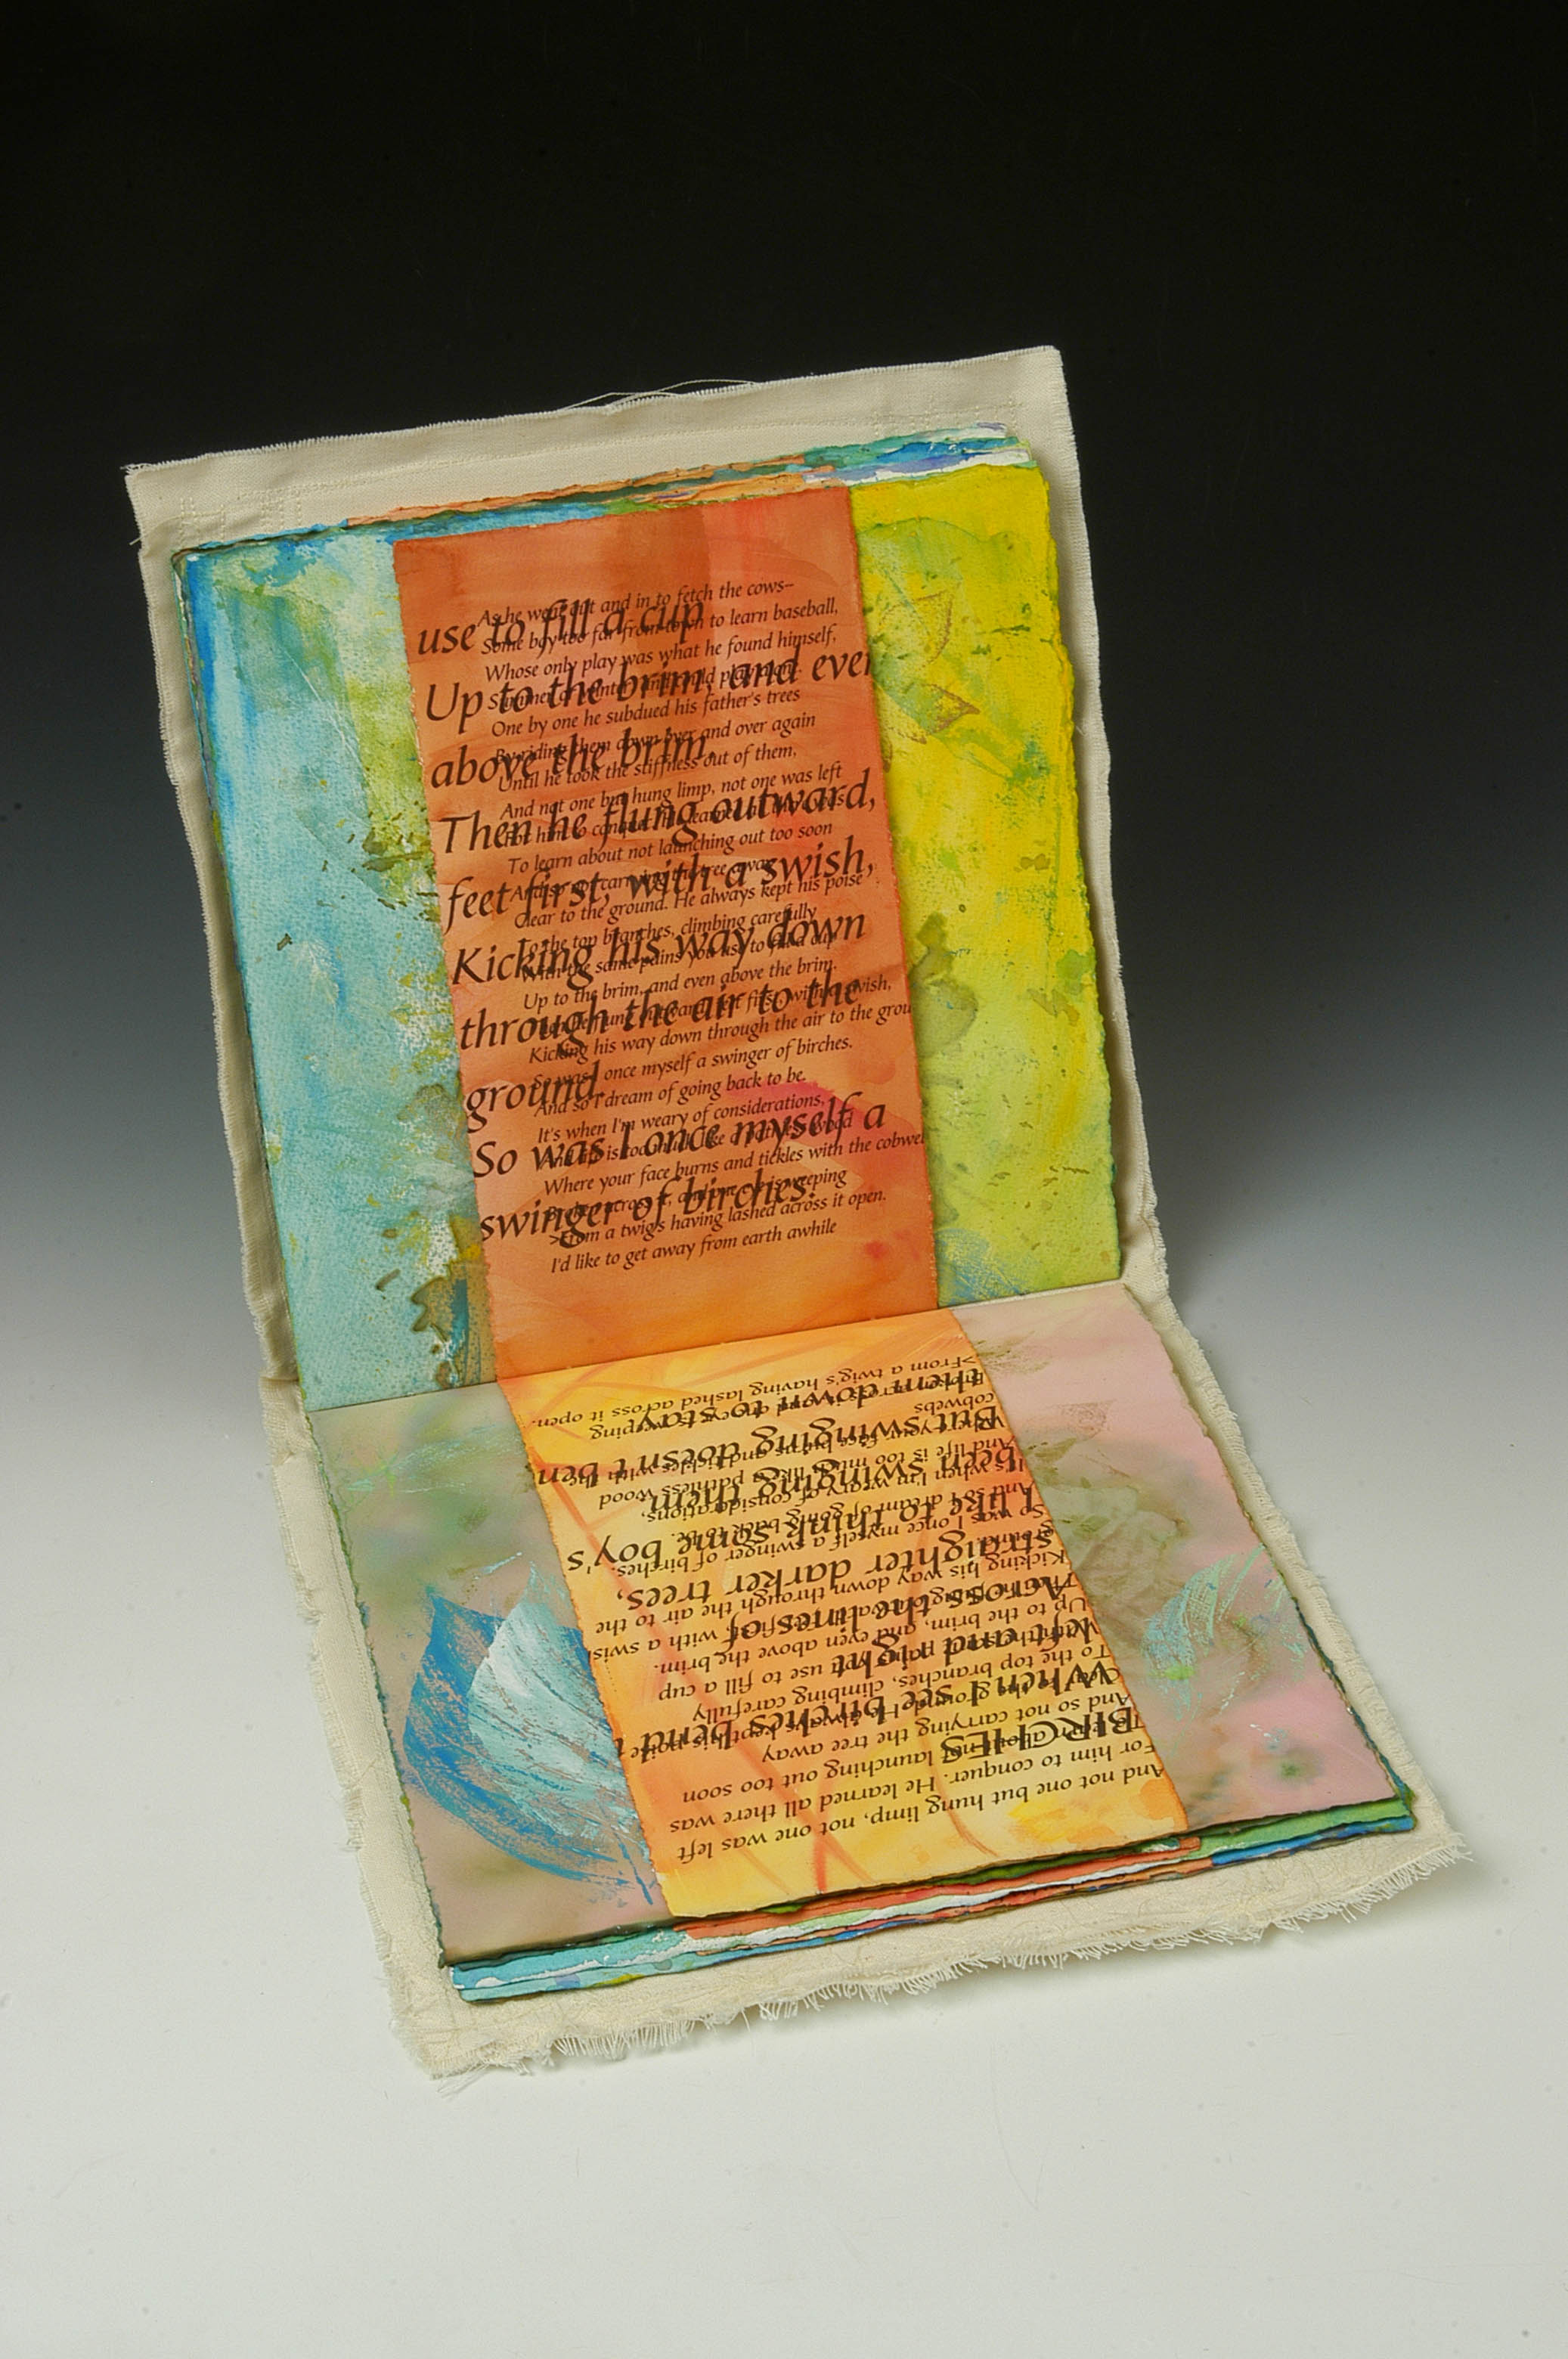 use to fill a cup
Up to the brim, and even
above the brim.
Then he flung outward,
feet first, with a swish,
Kicking his way down
through the air to the
ground.
So was I once myself a
swinger of birches.
As he went out and in to fetch the cows–
Some boy too far from town to learn baseball,
Whose only play was what he found himself,
Summer or winter, and could play alone.
One by one he subdued his father's trees
By riding them down over and over again
Until he took the stiffness out of them,
And not one but hung limp, not one was left
For him to conquer. He learned all there was
To learn about not launching out too soon
And so not carrying the tree away
Clear to the ground. He always kept his poise
To the top branches, climbing carefully
With the same pains you use to fill a cup
Up to the brim, and even above the brim.
Then he flung outward, feet first, with a swish,
Kicking his way down through the air to the grou
So was I once myself a swinger of birches.
And so I dream of going back to be.
It's when I'm weary of considerations,
And life is too much like a pathless wood
Where your face burns and tickles with the cobwe
Broken across it, and one eye is weeping
>From a twig's having lashed across it open.
I'd like to get away from earth awhile
BIRCHES
When I see birches bend t
left and right
Across the lines of
straighter darker trees,
I like to think some boy's
been swinging them.
But swinging doesn't ben
them down to stay
And not one but hung limp, not one was left
For him to conquer. He learned all there was
To learn about not launching out too soon
And so not carrying the tree away
Clear to the ground. He always kept his poise
To the top branches, climbing carefully
With the same pains you use to fill a cup
Up to the brim, and even above the brim.
Then he flung outward, feet first, with a swis
Kicking his way down through the air to the
ground.
So was I once myself a swinger of birches.
And so I dream of going back to be.
It's when I'm weary of considerations,
And life is too much like a pathless wood
Where your face burns and tickles with the
cobwebs
Broken across it, and one eye is weeping
>From a twig's having lashed across it open.